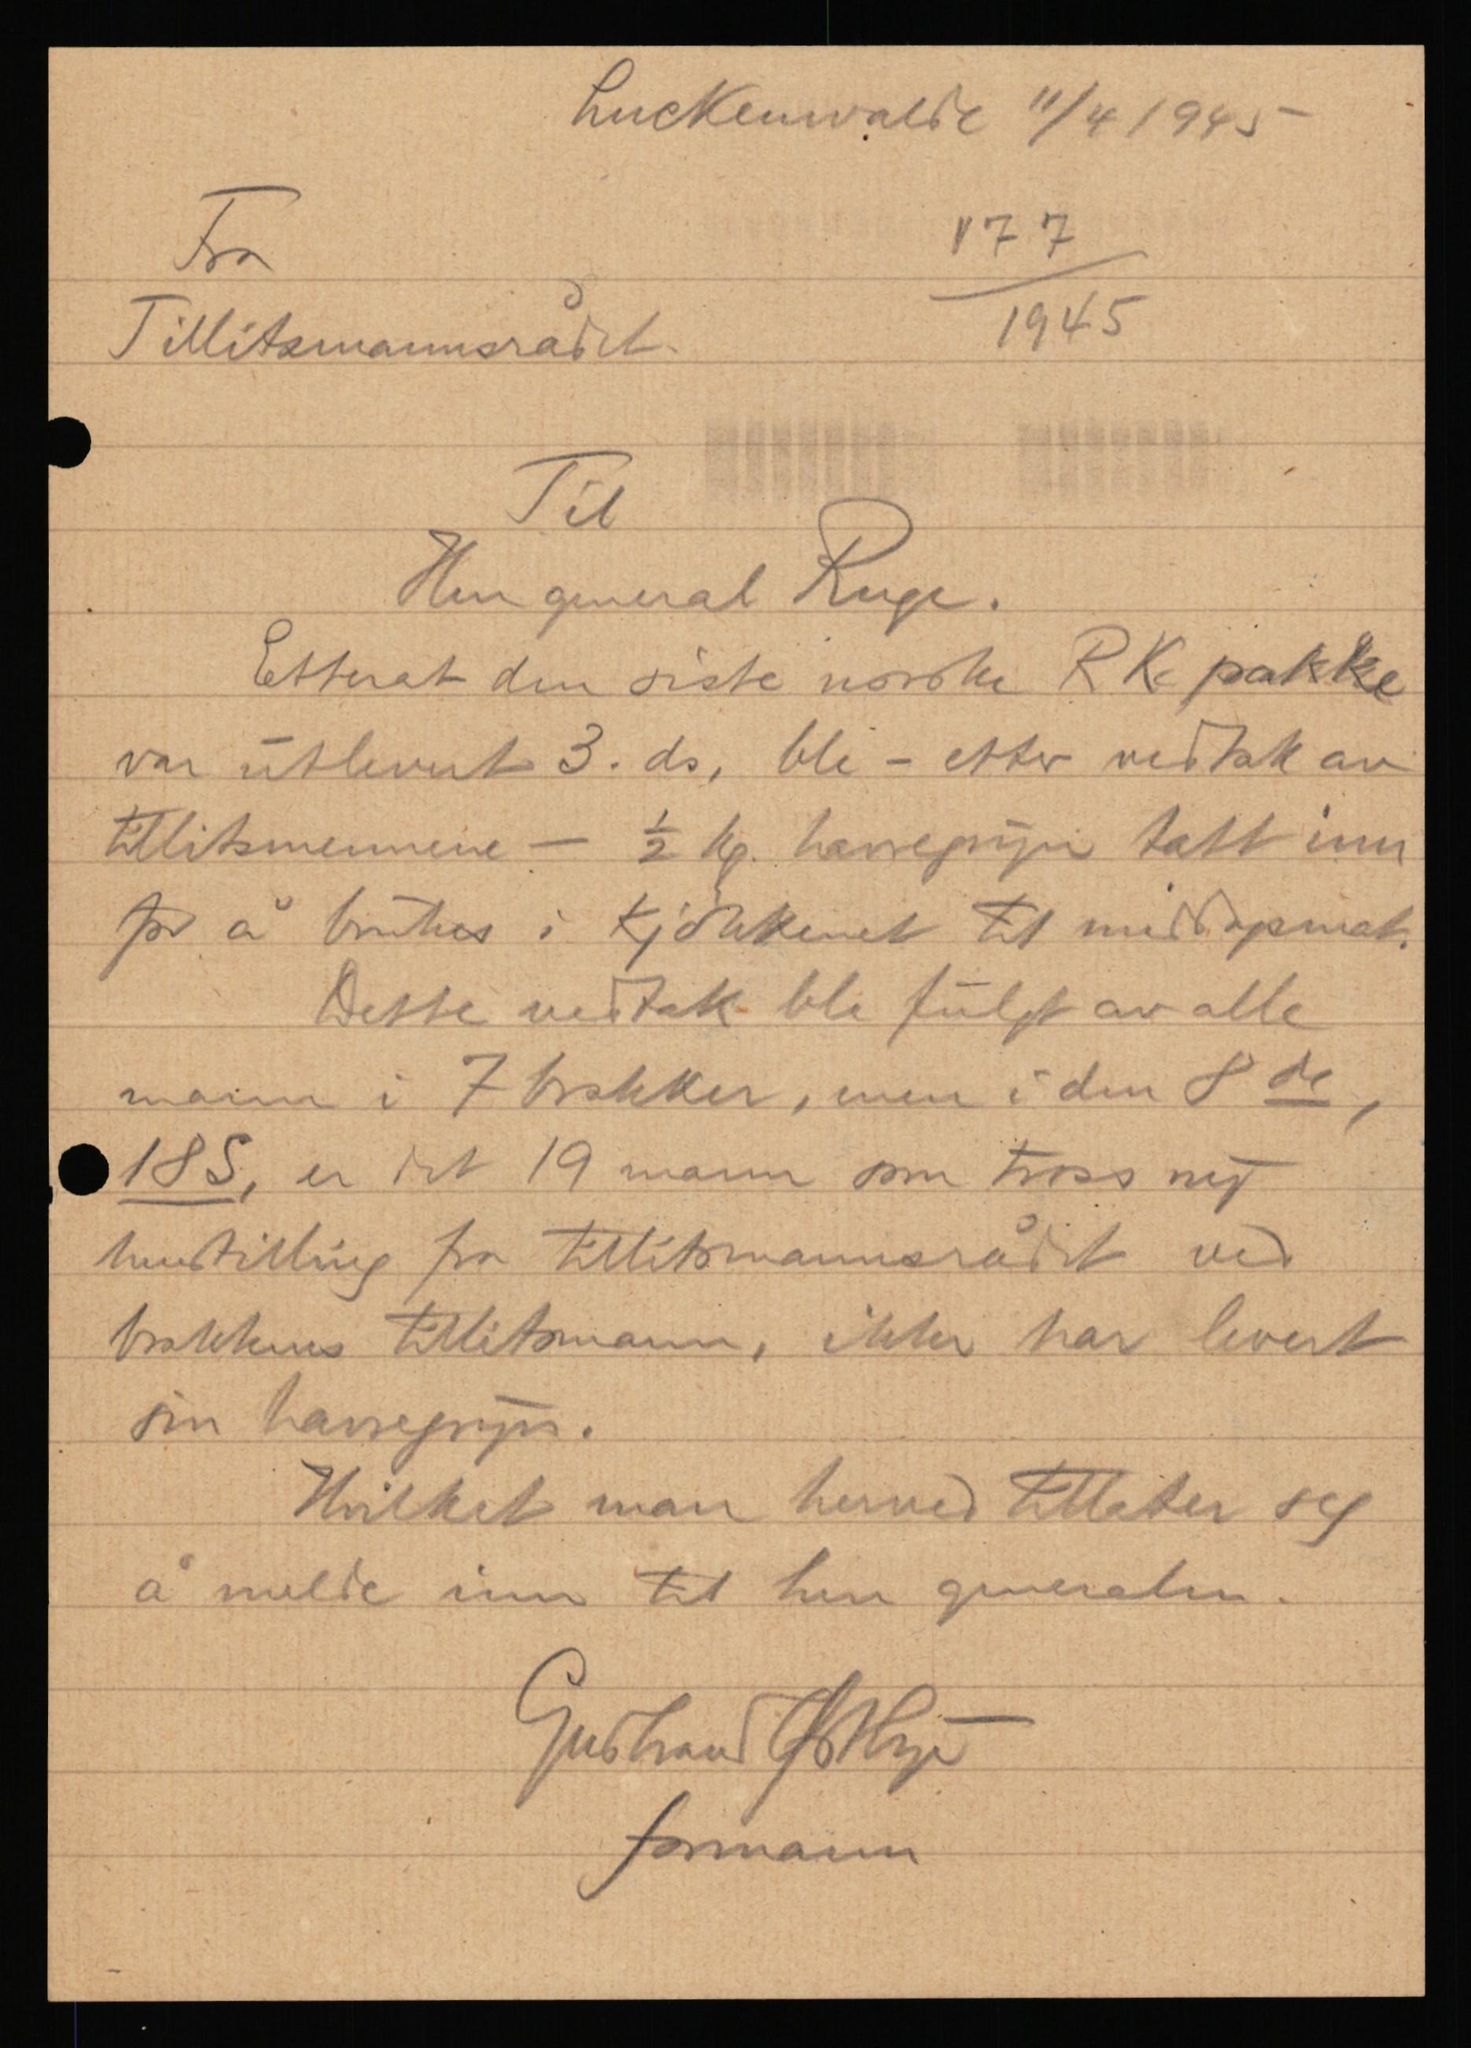 Luckenwalde 11/4 1945
Fra
177
1945
Tillitsmannsrådet.
Til
Herr general Ruge.
Etterat den siste norske R K. pakke
var utlevert 3. ds, ble - etter vedtak av
tillitsmennene - ½ kg. havregryn tatt inn
for å brukes i kjökkenet til middagsmat.
Dette vedtak ble fulgt av alle
mann i 7 brakker, men i den 8 de,
18S, er det 19 mann som tross
henstilling fra tillitsmannsrådet ved
brakkens tillitsmann, ikke har levert
sin havregryn.
Hvilket man herved tillater seg
å melde inn til herr generalen.
Gudbrand Østbye
formann